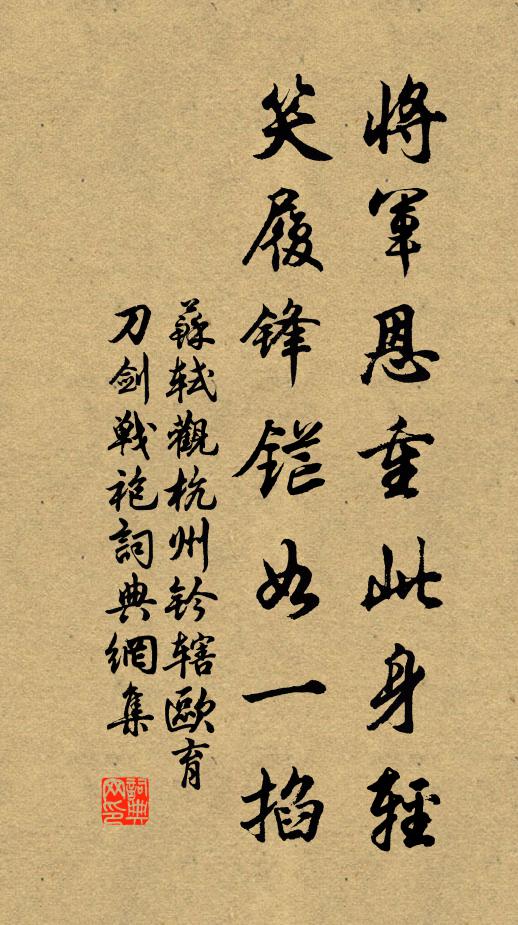 將軍恩重此身輕
笑履鋒鋩如一掐
蘇軾觀杭州鈐轄歐育
刀劍戰袍詞典網集
詞典
网印